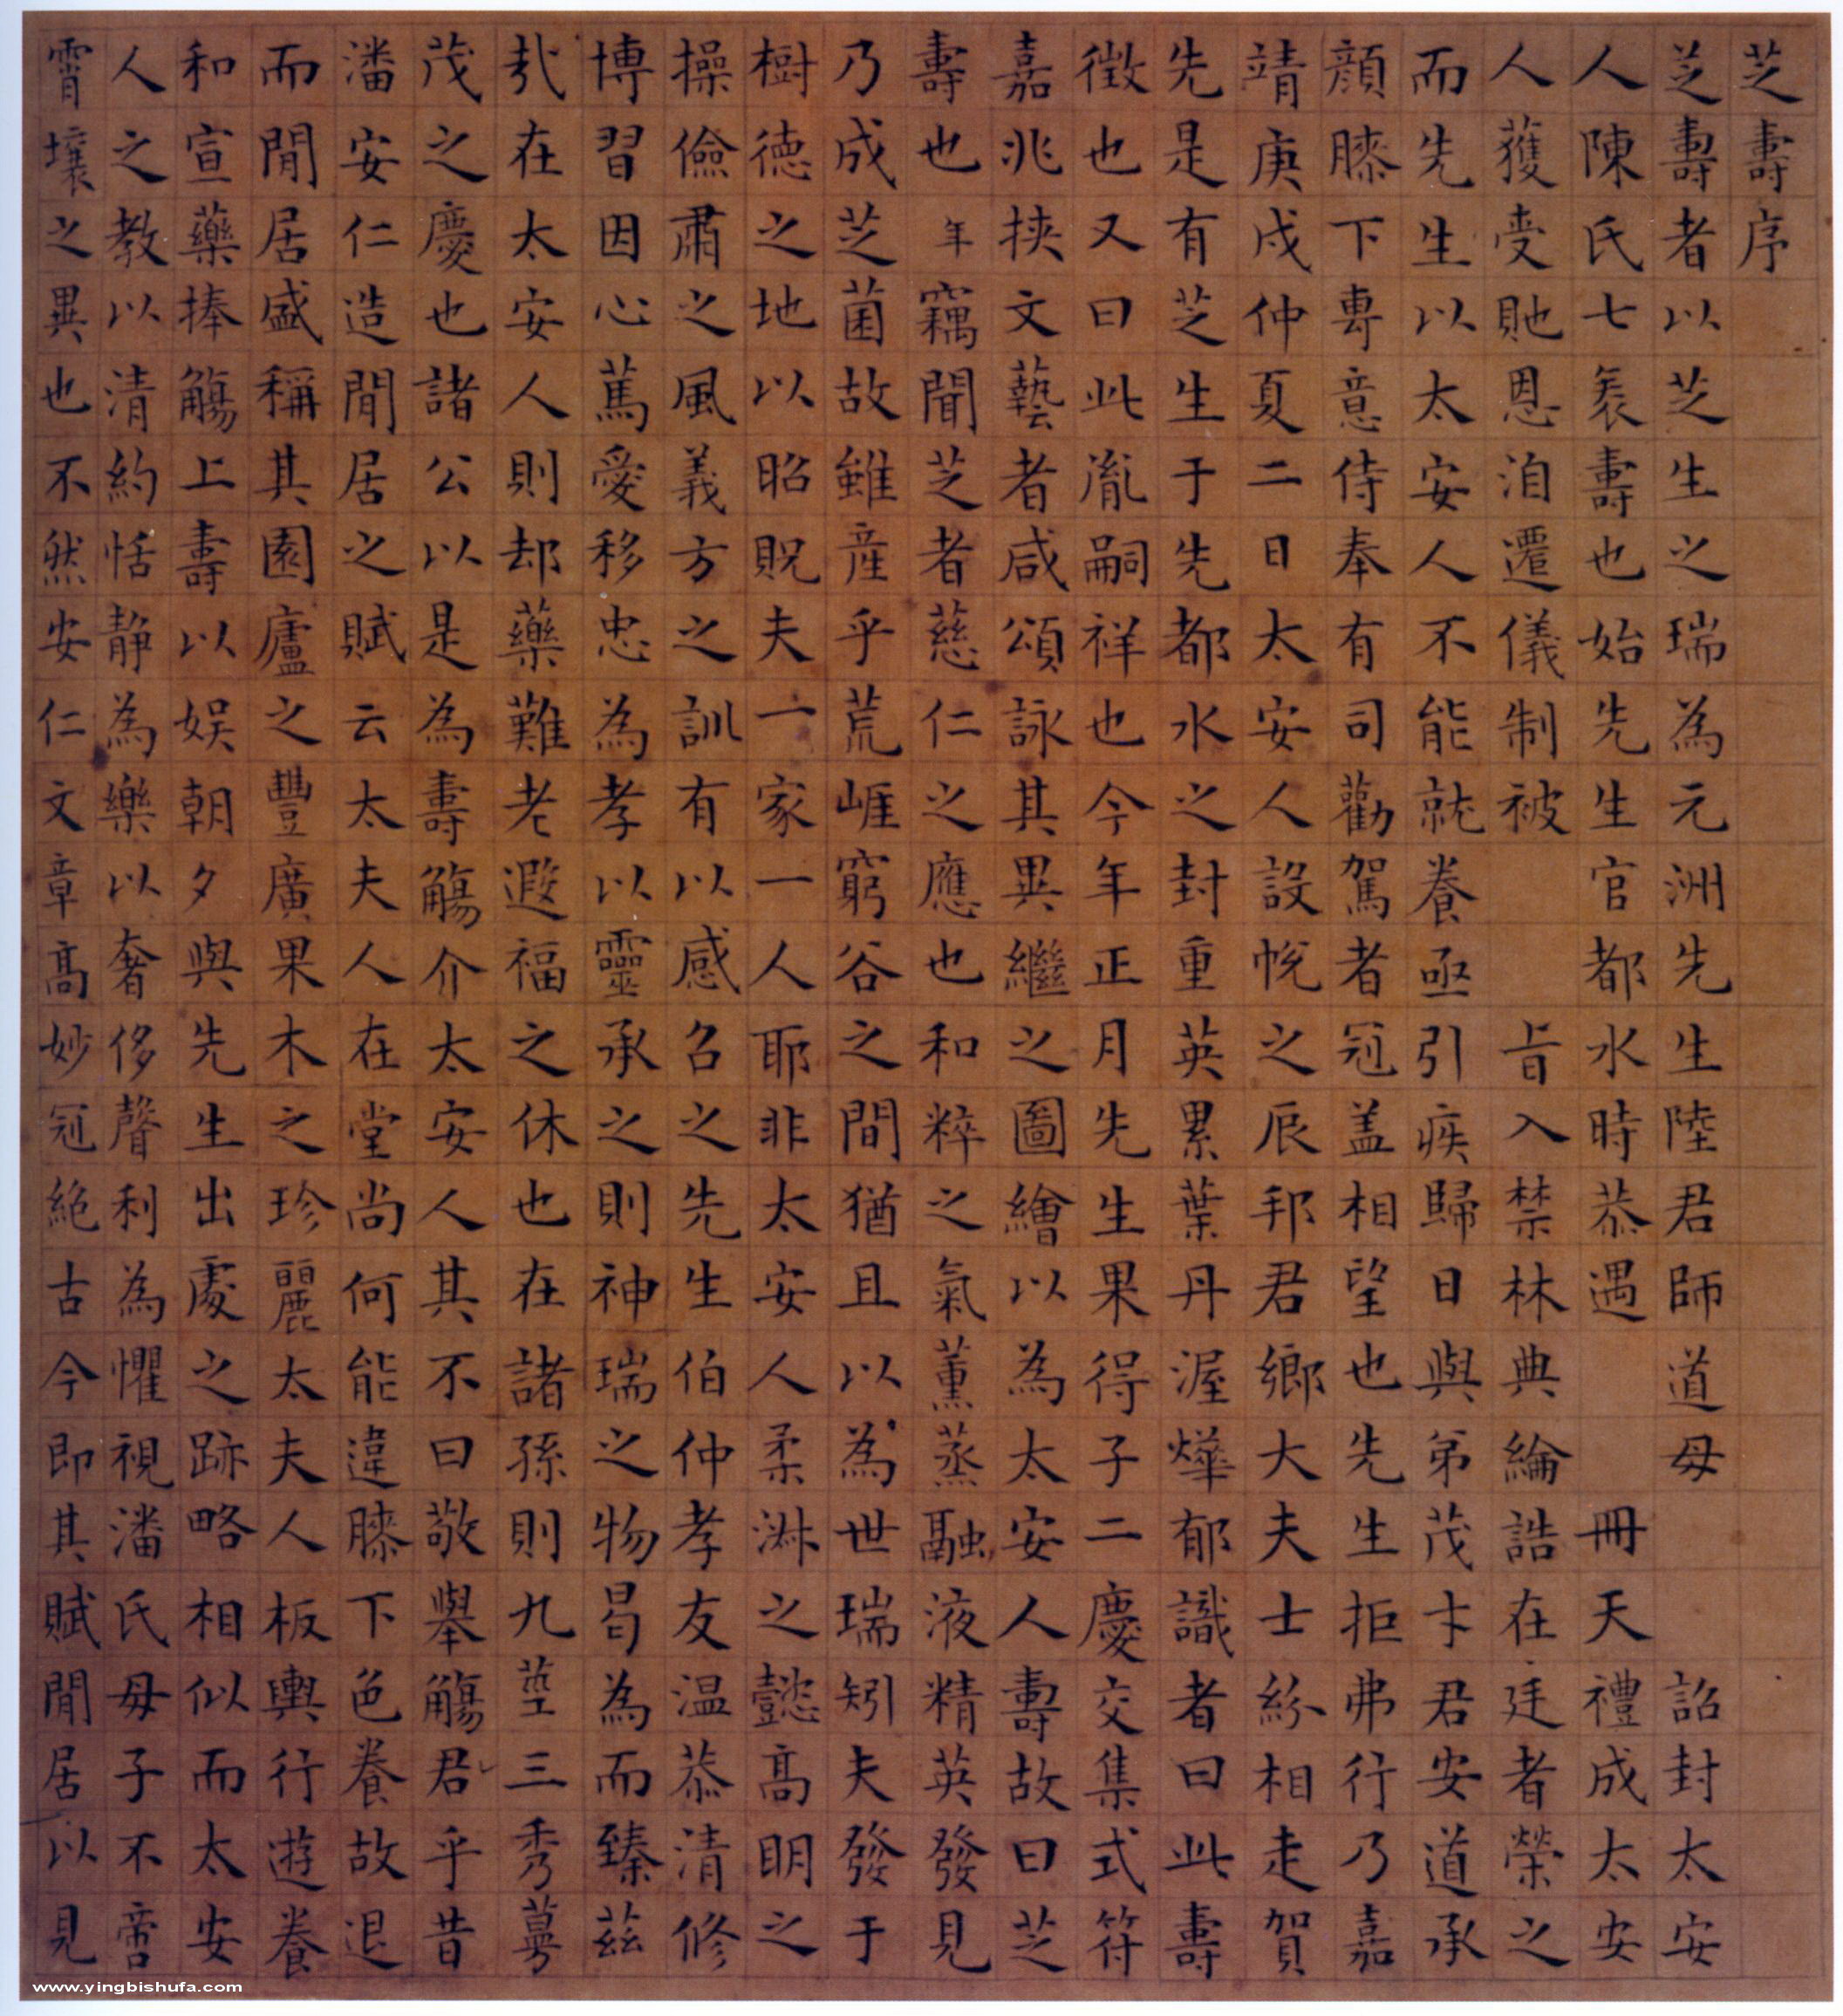 芝壽序
芝壽者以芝生之瑞為元洲先生陸君師道母詔封太安
人陳氏七袠壽也始先生官都水時恭遇冊天禮成太安
人獲受貤恩洎遷儀制被旨入禁林典綸誥在廷者榮之
而先生以太安人不能就養亟引疾歸日與弟茂卞君安道承
顏膝下專意侍奉有司勸駕者冠蓋相望也先生拒弗行乃嘉
靖庚戌仲夏二日太安人設帨之辰邦君鄉大夫士紛相走賀
先是有芝生于先都水之封重英累葉丹渥燁郁識者曰此壽
徵也又曰此胤嗣祥也今年正月先生果得子二慶交集式符
嘉兆挾文藝者咸頌詠其異繼之圖繪以為太安人壽故曰芝
壽也年竊聞芝者慈仁之應也和粹之氣薰蒸融液精英發見
乃成芝菌故雖產乎荒崕窮谷之間猶且以為世瑞矧夫發于
樹德之地以昭貺夫一家一人耶非太安人柔淋之懿高明之
操儉肅之風義方之訓有以感名之先生伯仲孝友温恭清修
博習因心篤愛移忠為孝以靈承之則神瑞之物曷為而臻茲
㢤在太安人則却藥難老遐福之休也在諸孫則九莖三秀蕚
茂之慶也諸公以是為壽觴介太安人其不曰敬舉觴君乎昔
潘安仁造閒居之賦云太夫人在堂尚何能違膝下色養故退
而閒居盛稱其園廬之豐廣果木之珍麗太夫人板輿行遊養
和宣藥捧觴上壽以娱朝夕與先生出處之跡略相似而太安
人之教以清約恬靜為樂以奢侈聲利為懼視潘氏母子不啻
霄壤之異也不然安仁文章高妙冠絕古今即其賦閒居以見
www.yingbishufa.com